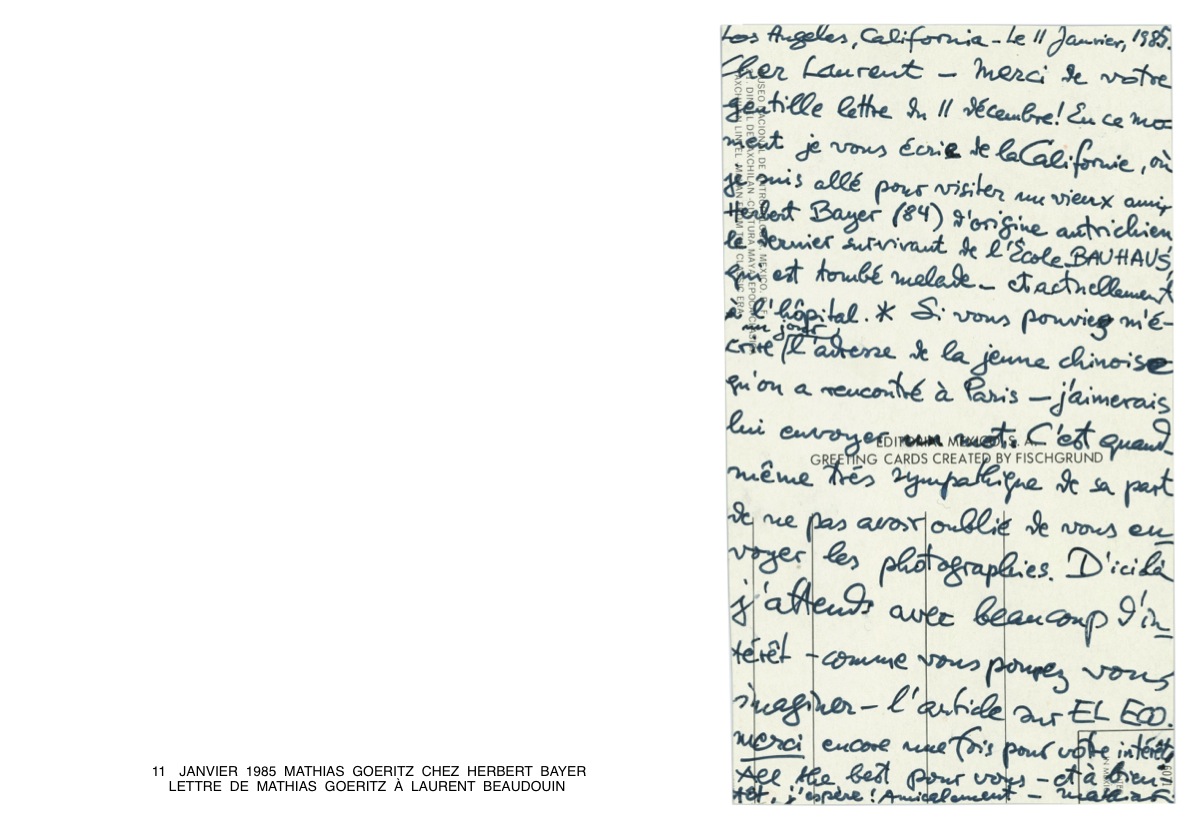 11 JANVIER 1985 MATHIAS GOERITZ CHEZ HERBERT BAYER
LETTRE DE MATHIAS GOERITZ À LAURENT BEAUDOUIN
Los Angeles, California - Le 11 Janvier, 1985.
Cher Laurent – Merci de votre
gentille lettre du 11 décembre! En ce mo-
ment je vous écrie de la Californie, où
je suis allé pour visiter un vieux ami,
Herbert Bayer (84) d'origine autrichien
le dernier survivant de l'École BAUHAUS,
qui est tombé malade – et actuellement
à l'hôpital. * Si vous pouviez m'é-
un jour,
crire l'adresse de la jeune chinoise
qu'on a rencontré à Paris – j'aimerais
lui envoyer un mot. C'est quand
même très sympathique de sa part
de ne pas avoir oublié de vous en-
voyer les photographies. D'ici là
j'attends avec beaucoup d'in-
térêt – comme vous pouvez vous
imaginer – l'article sur EL ECO.
merci encore une fois pour votre intérêt.
All the best pour vous – et à bien-
tôt, j'espère! Amicalement – Mathias
MUSEO NACIONAL DE ANTROPOLOGIA. MEXICO, D. F.
EDITORIAL MEXICO, S. A.
GREETING CARDS CREATED BY FISCHGRUND